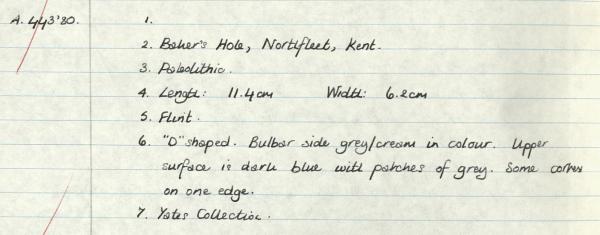 A. 443'80.
1.
2. Baker's Hole, Northfleet, Kent.
3. Paleolithic.
4. Length: 11.4cm Width: 6.2cm
5. Flint.
6. "D" shaped. Bulbar side grey/cream in colour. Upper
surface is dark blue with patches of grey. Some cortex
on one edge.
7. Yates Collection.